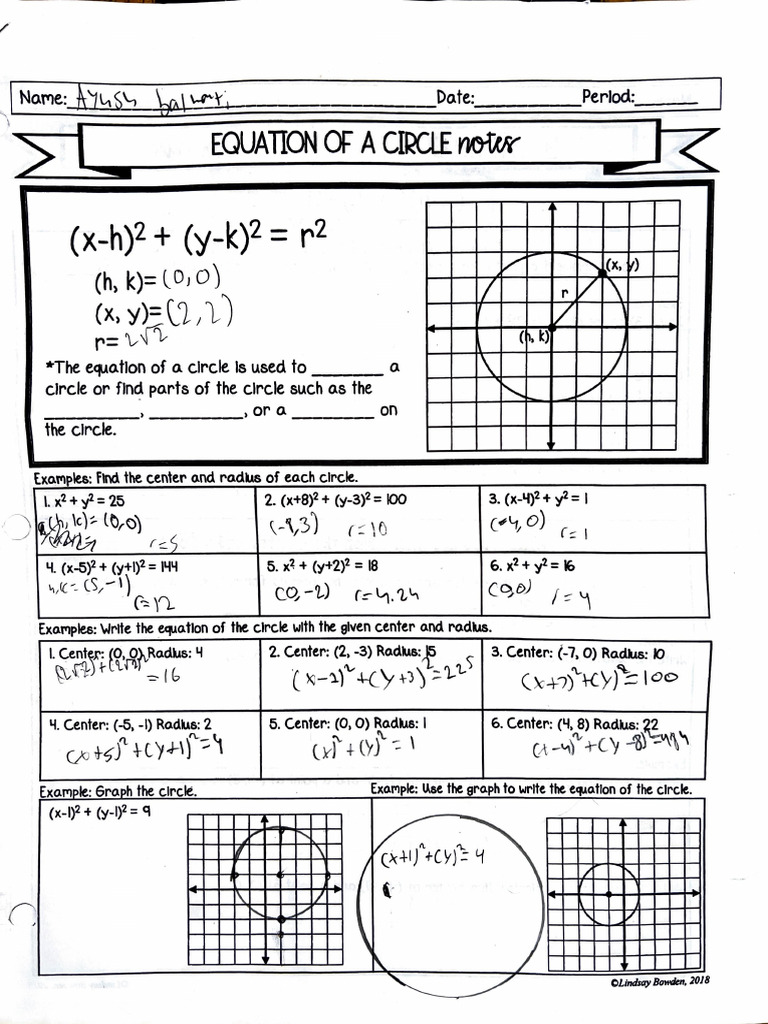 Name: Ayush Date: Period:
EQUATION OF A CIRCLE notes
(x-h)² + (y-k)² = r²
(h, k)= (0,0)
(x, y)= (2,2)
r= 2√2
*The equation of a circle is used to ________ a
circle or find parts of the circle such as the
__________, __________, or a _________ on
the circle.
(x, y)
r
(h, k)
Examples: Find the center and radius of each circle.
1. x² + y² = 25
(h, k) = (0,0)
r=5
2. (x+8)² + (y-3)² = 100
(-8,3) r=10
3. (x-4)² + y² = 1
(4,0) r=1
4. (x-5)² + (y+1)² = 144
h,k = (5,-1)
r=12
5. x² + (y+2)² = 18
(0,-2) r=4.24
6. x² + y² = 16
(0,0) r=4
Examples: Write the equation of the circle with the given center and radius.
1. Center: (0, 0) Radius: 4
(2√2)²+(2√2)²
=16
2. Center: (2, -3) Radius: 15
(x-2)²+(y+3)²=225
3. Center: (-7, 0) Radius: 10
(x+7)²+(y)²=100
4. Center: (-5, -1) Radius: 2
(x+5)²+(y+1)²=4
5. Center: (0, 0) Radius: 1
(x)²+(y)²=1
6. Center: (4, 8) Radius: 22
(x-4)²+(y-8)²=484
Example: Graph the circle.
(x-1)² + (y-1)² = 9
Example: Use the graph to write the equation of the circle.
(x+1)²+(y)²=4
©Lindsay Bowden, 2018